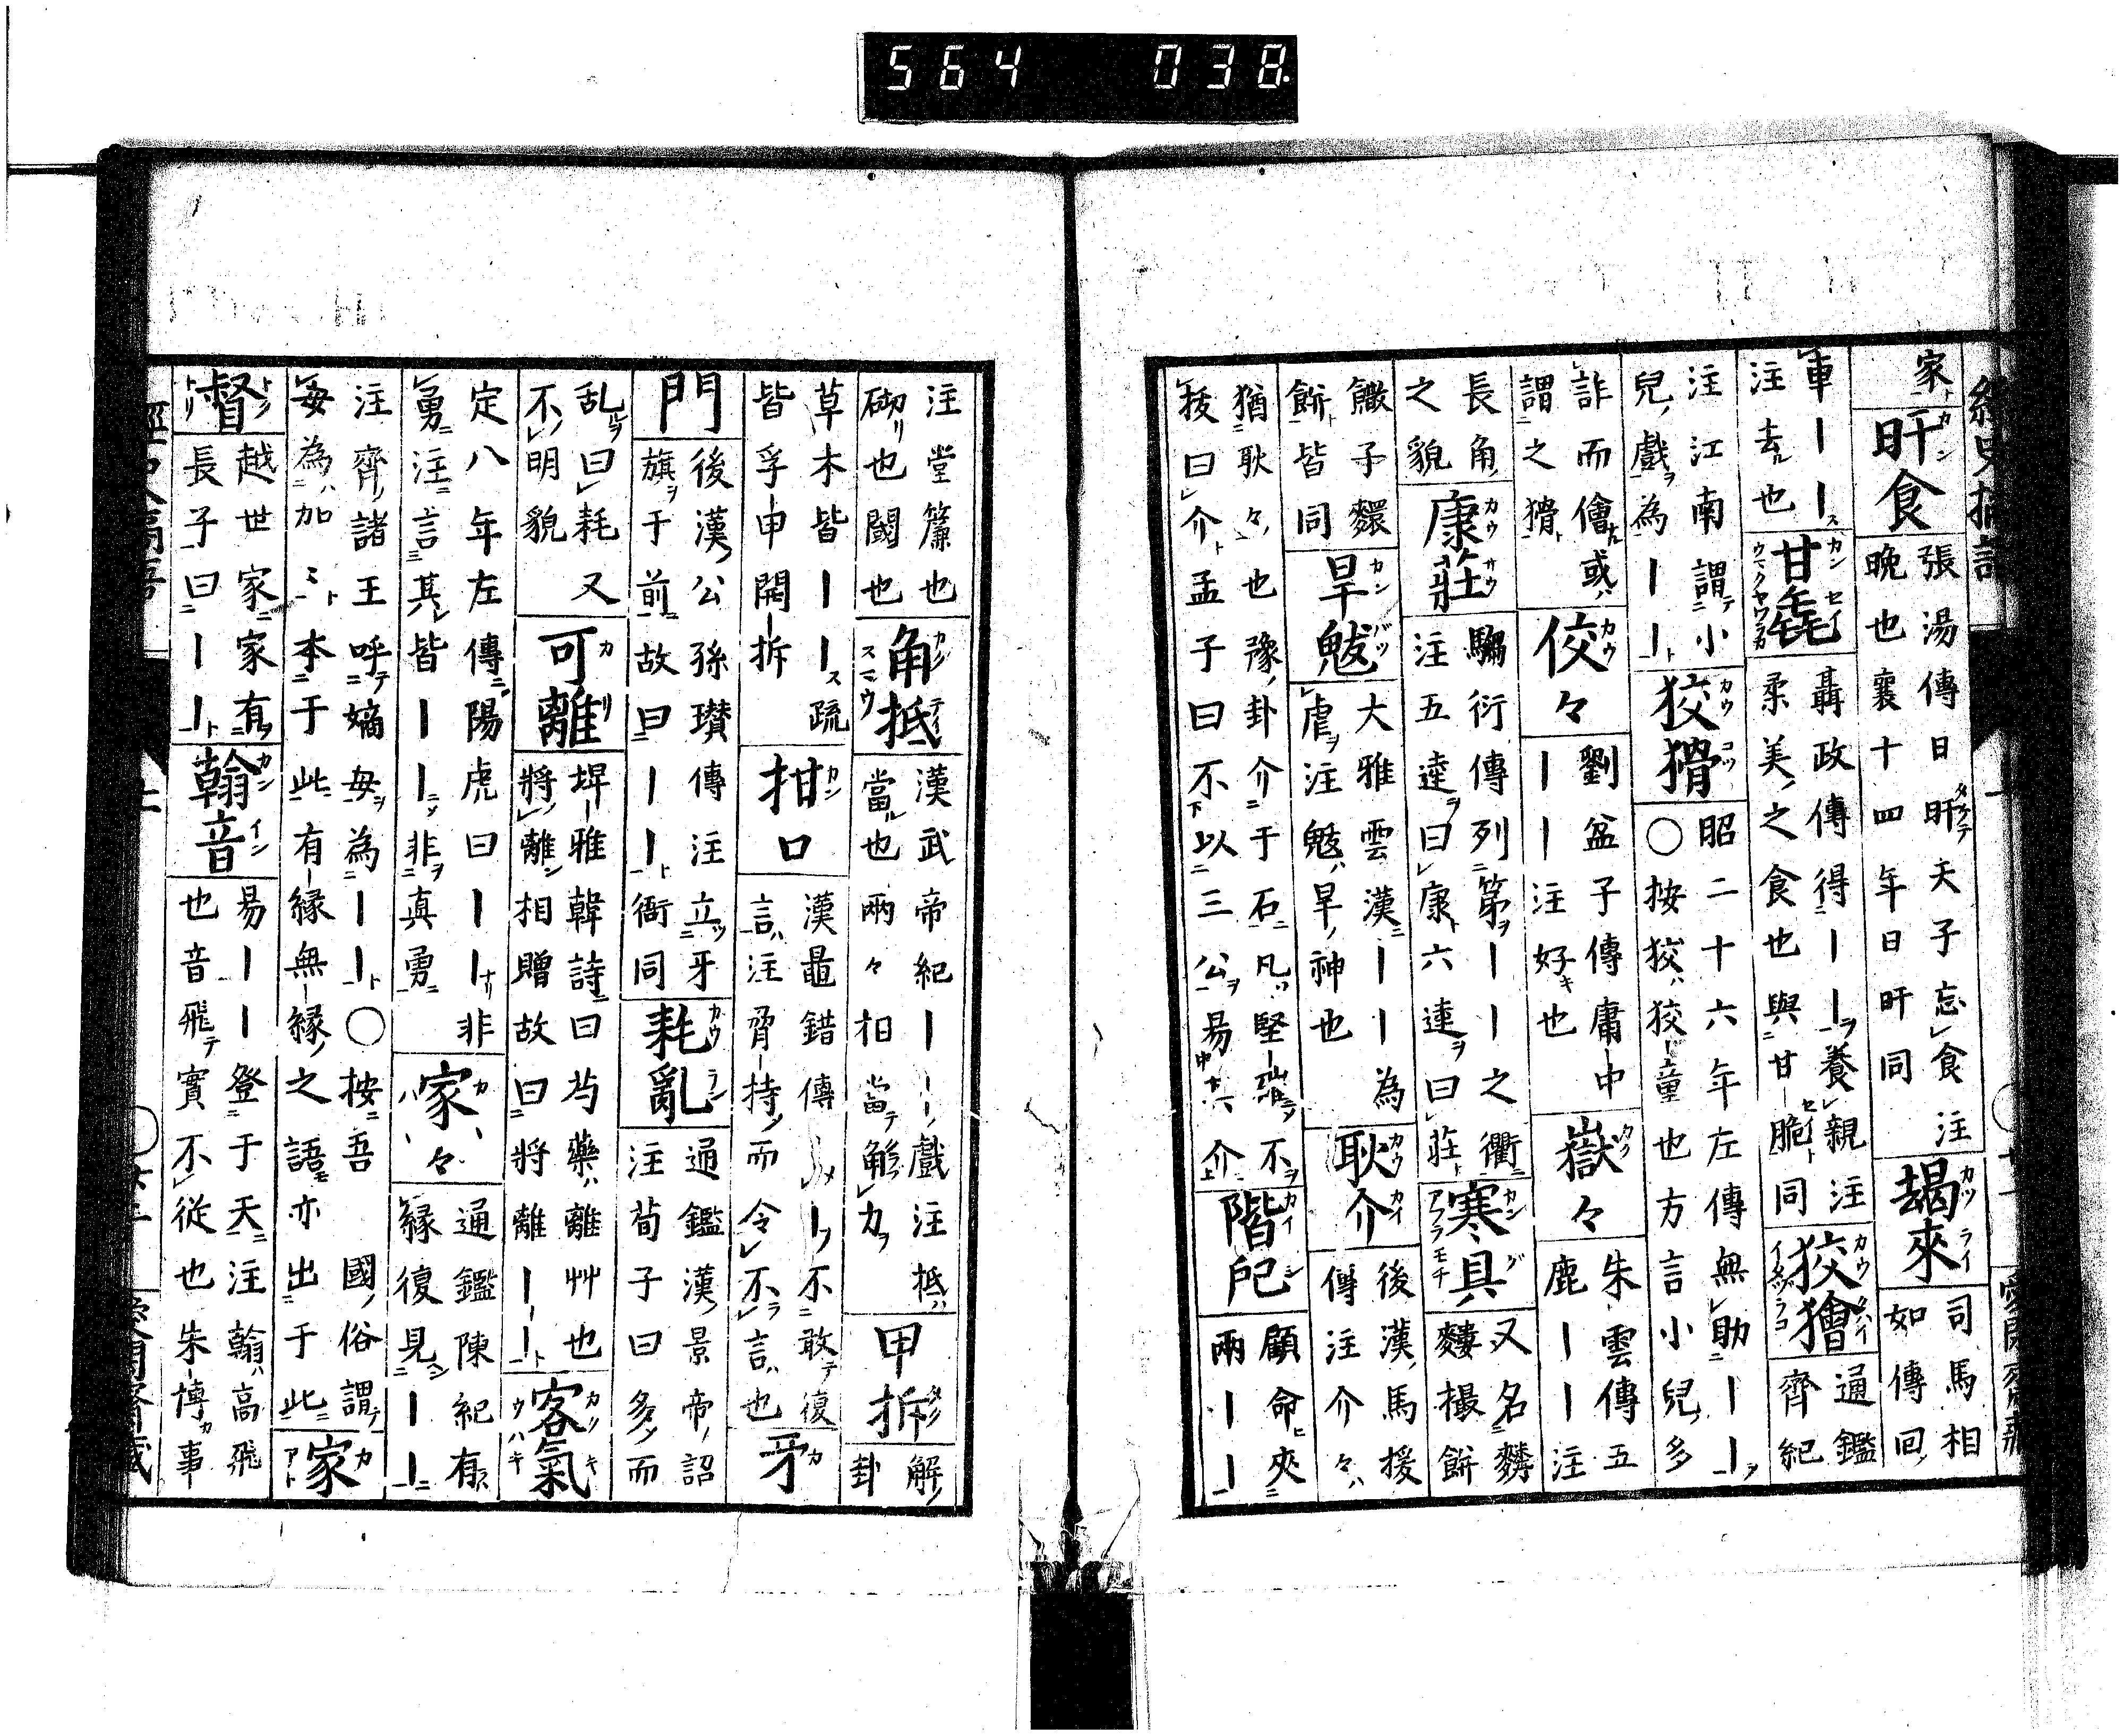 564 038
家
旰食
張湯傳日旰天子忘食注
晩也襄十四年日旰同
朅來
司馬相
如傳回
車｜｜
注去也
甘毳
聶政傳得｜｜養親注
柔美之食也與甘脆同
狡獪
通鑑
齊紀
注江南謂小
兒戲為｜｜
狡猾
昭二十六年左傳無助｜｜
〇按狡狡童也方言小兒多
詐而獪或
謂之猾
佼々
劉盆子傳庸中
｜｜注好也
嶽々
朱雲傳五
鹿｜｜注
長角
之貌
康莊
騶衍傳列第｜｜之衢
注五達曰康六達曰莊
寒具
又名䴽
䴹撮餅
饊子䴉
餅皆同
旱魃
大雅雲漢｜｜為
虐注魃旱神也
耿介
後漢馬援
傳注介々
猶耿々也豫卦介于石凡堅確不
拔曰介孟子曰不以三公易介
階戺
顧命夾
兩｜｜
注堂簾也
砌也閾也
角抵
漢武帝紀｜｜戲注抵
當也兩々相當觧力
甲拆
解
卦
草木皆｜｜疏
皆孚甲開拆
拑口
漢鼂錯傳｜不敢復
言注脅持而令不言也
牙
門
後漢公孫瓉傳注立牙
旗于前故曰｜｜衙同
耗亂
通鑑漢景帝詔
注荀子曰多而
乱曰耗又
不明貌
可離
埤雅韓詩曰芍藥離艸也
將離相贈故曰将離｜｜
客氣
定八年左傳陽虎曰｜｜非
勇注言其皆｜｜非真勇
家々
通鑑陳紀有
緣復見｜｜
注齊諸王呼嫡母為｜｜〇按吾國俗謂
毎為加々本于此有緣無緣之語亦出于此
家
督
越世家家有
長子曰｜｜
翰音
易｜｜登于天注翰高飛
也音飛實不從也朱博事